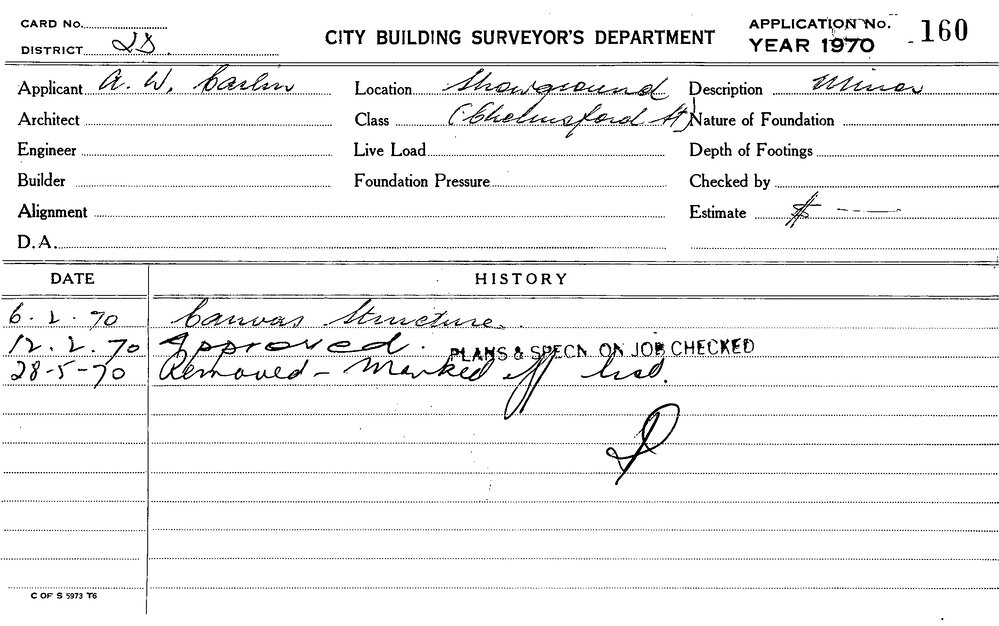 CARD No.
DISTRICT 28.
CITY BUILDING SURVEYOR'S DEPARTMENT
APPLICATION No. 160
YEAR 1970
Applicant A. W. Carlin Location Showground Description Minor
Architect Class (Chelmsford St) Nature of Foundation
Engineer Live Load Depth of Footings
Builder Foundation Pressure Checked by
Alignment Estimate $ -----
D.A.
DATE HISTORY
6.2.70 Canvas Structure.
12.2.70 Approved. PLANS & SPECN ON JOB CHECKED
28-5-70 Removed - Marked off list.
C OF S 5973 T6